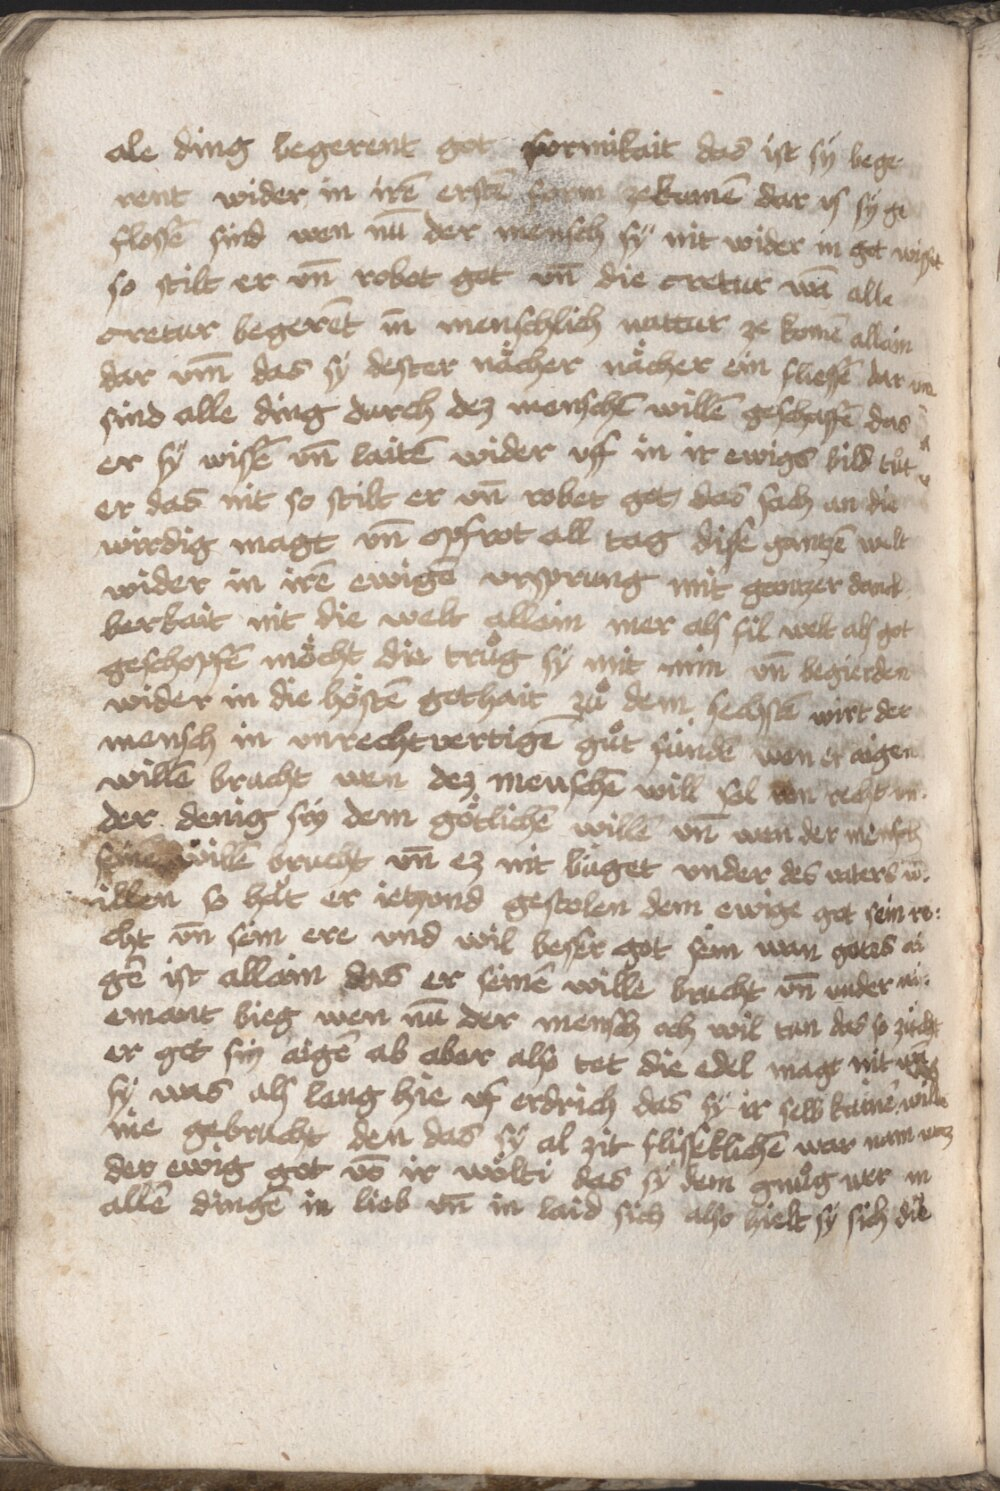 ale ding begerent got formikait das ist sÿ bege-
rent wider in irē erstē form ze kumē dar vs sÿ ge
flossē sind wen nū der mensch sÿ nit wider in got wiset
so stilt er vn̄ robet got vn̄ die cretur wā alle
cretur begerēt in menschlich nattur ze komē allain
dar vm̄ das sÿ dester nächer nächer ein fliessē dar vm
sind alle ding durch dez menschē willē geschaffē das
er sÿ wisē vn̄ laitē wider vff in ir ewigs bild tůt
er das nit so stilt er vn̄ robet got das sach an die
wirdig magt vn̄ opfrot all tag dise gantzē welt
wider in irē ewigē vrsprung mit gantzer danck
berkait nit die welt allain mer als fil welt als got
geschopfē möcht die trůg sÿ mit min vn̄ begierden
wider in die höstē gothait zů dem sechstē wirt der
mensch in vnrechtvertigē gůt fundē wen er aigen
willē brucht wen dez menschē will sol von recht vn-
der denig sin dem götlichē willē vn̄ wen der mensch
sinē willē brucht vn̄ ez nit büget vnder des vaters w-
illen so hät er ietzond gestolen dem ewigē got sein re-
cht vn̄ sein ere vnd wil besser got sein wan gotes ai
gē ist allain das er seinē willē brucht vn̄ vnder ni-
emant bieg wen nū der mensch och wil tun das so zücht
er got sin aigē ab aber also tet die edel magt nit wā
sÿ was als lang hie vf erdrich das sÿ ir selb kainē willē
nie gebrucht den das sÿ al zit flisseklichē war nam waz
der ewig got vō ir wölti das sÿ dem gnůg wer in
allē dingē in lieb vn̄ in laid sich also hielt sÿ sich die